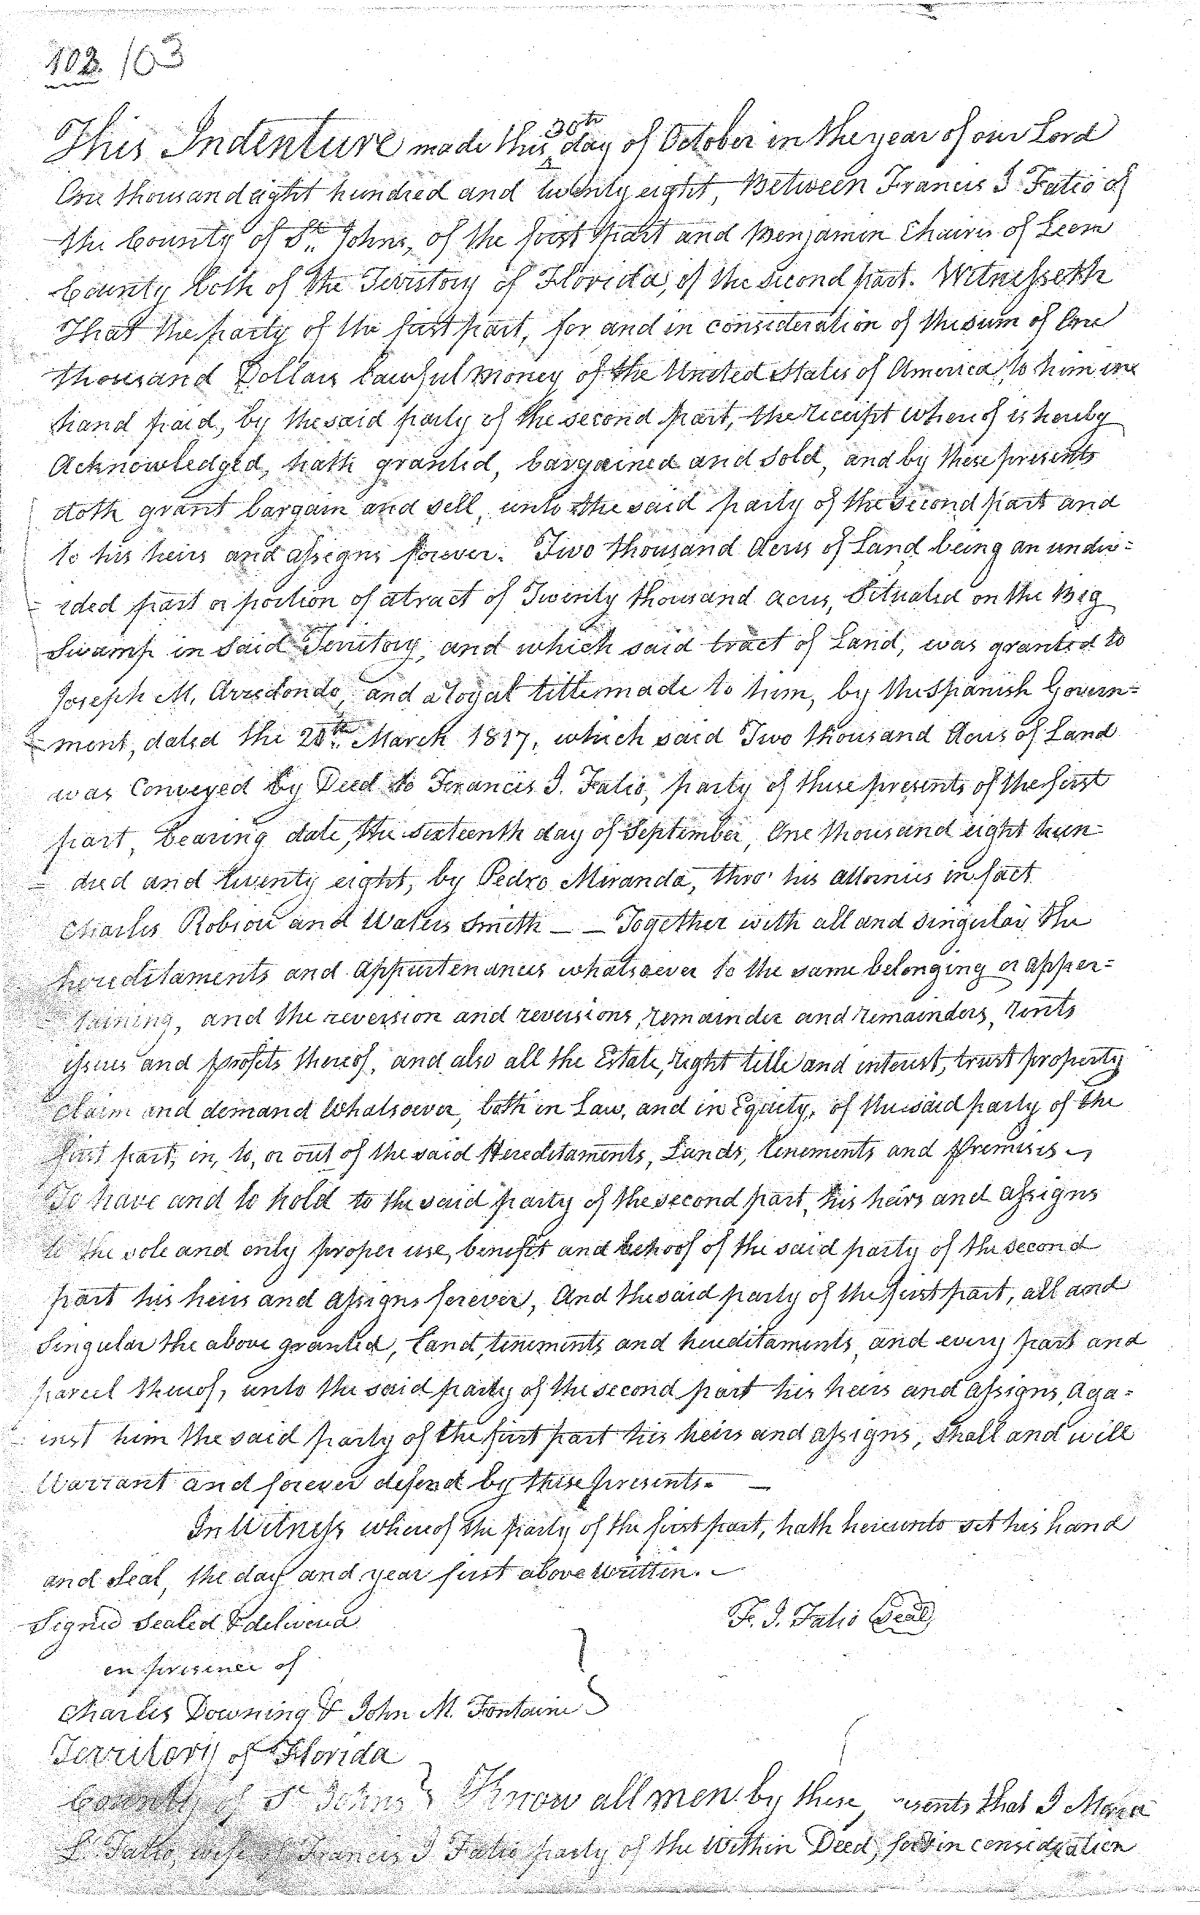 102. 103
This Indenture made this 30th day of October in the year of our Lord
One thousand eight hundred and twenty eight, Between Francis J Fatio of
the County of St. Johns, of the first part and Benjamin Chaires of Leon
County both of the Territory of Florida, of the second part. Witnesseth
That the party of the first part, for and in consideration of the sum of One
thousand Dollars lawful money of the United States of America, to him in
hand paid, by the said party of the second part, the receipt whereof is hereby
Acknowledged, hath granted, bargained and sold, and by these presents
doth grant bargain and sell, unto the said party of the second part and
to his heirs and assigns forever. Two thousand Acres of Land being an undiv=
=ided part or portion of a tract of Twenty thousand acres, Situated on the Big
Swamp in said Territory, and which said tract of Land, was granted to
Joseph M. Arredondo, and a loyal tittle made to him, by the Spanish Govern=
=ment, dated the 20th. March 1817, which said Two thousand Acres of Land
was Conveyed by Deed to Francis J. Fatio, party of these presents of the first
part, bearing date, the sixteenth day of September, One thousand eight hun=
= dred and twenty eight, by Pedro Miranda, thro' his attornies in fact
Charles Robiou and Waters Smith — — Together with all and singular the
hereditaments and appurtenances whatsoever to the same belonging or apper=
taining, and the reversion and reversions, remainder and remainders, rents
issues and profits thereof, and also all the Estate, right title and interest, trust property
claim and demand whatsoever, both in Law, and in Equity, of the said party of the
first part, in, to, or out of the said Hereditaments, Lands, tenements and premises
To have and to hold to the said party of the second part, his heirs and assigns
to the sole and only proper use, benefit and behoof of the said party of the second
part his heirs and assigns forever, And the said party of the first part, all and
Singular the above granted, land, tenements and hereditaments, and every part and
parcel thereof, unto the said party of the second part his heirs and assigns, aga=
inst him the said party of the first part his heirs and assigns, shall and will
Warrant and forever defend by these presents. —
In Witness whereof the party of the first part, hath hereunto set his hand
and Seal, the day and year first above written. —
Signed Sealed & delivered F. J. Fatio Seal
in presence of
Charles Downing & John M. Fontaine
Territory of Florida
County of St Johns Know all men by these resents that I Maria
L. Fatio, wife of Francis J Fatio party of the within Deed, for in consideration